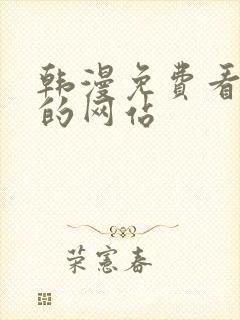 韩漫免费看
的网站
荣宪春